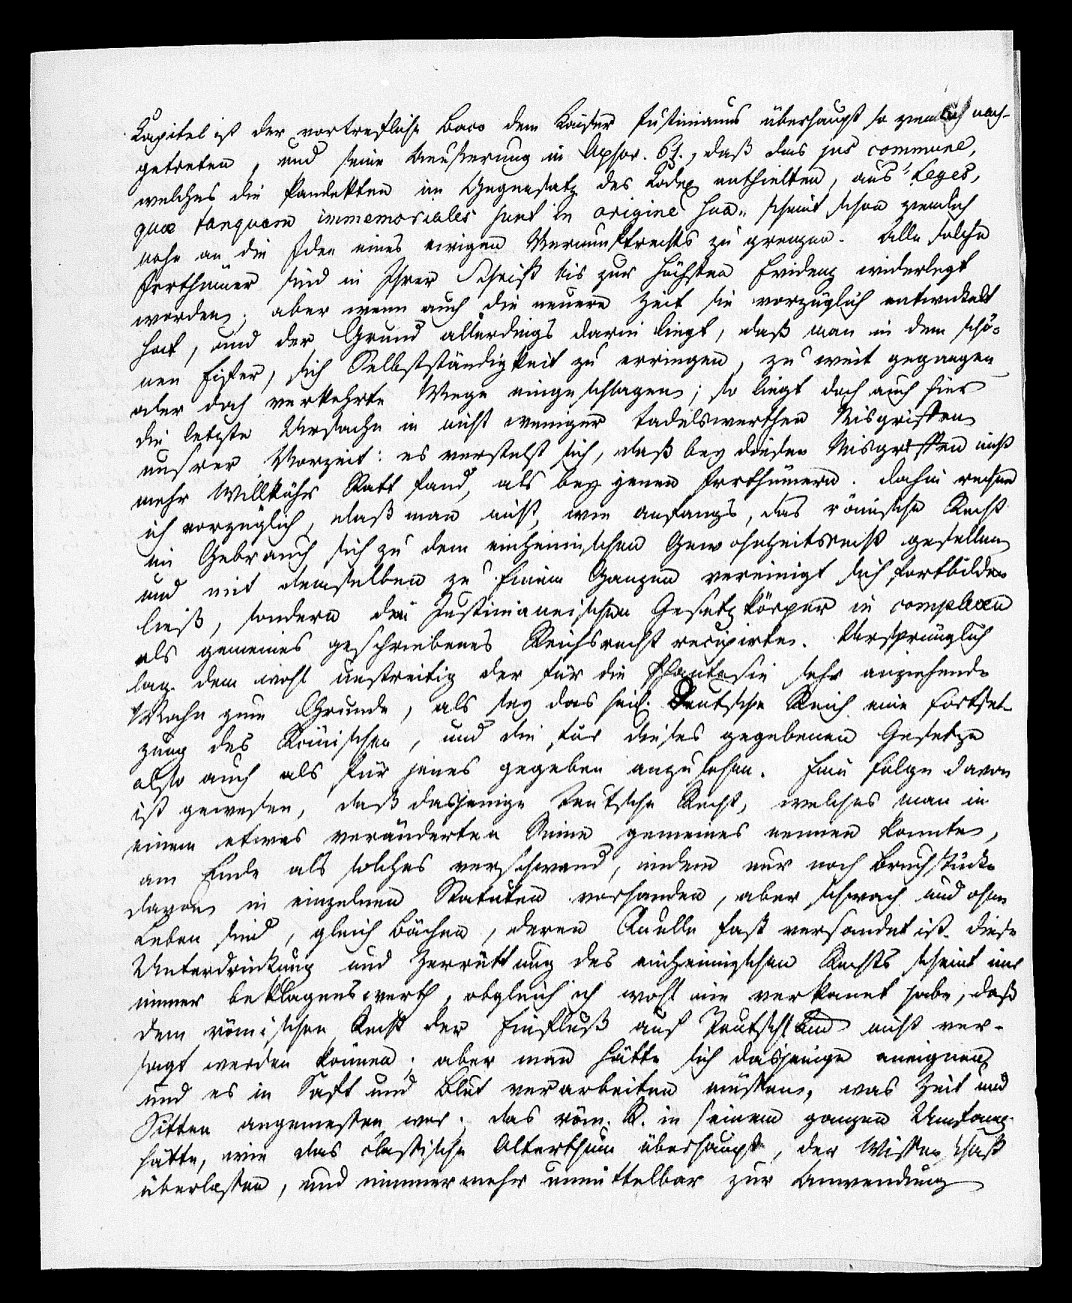 Kapitel ist der vortrefliche Baco dem Kaiser Justinianus überhaupt so ziemlich nach-
getreten, und seine Aeußerung in Aphor. 64., daß das jus commune,
welches die Pandekten im Gegensatz des Codex enthielten, aus „Leges,
quae tanquam immemoriales sunt in origine sua„ scheint schon ziemlich
nahe an die Idee eines ewigen Vernunftrechts zu grenzen. Alle solche
Irrthümer sind in Ihrer Schrift bis zur höchsten Evidenz widerlegt
worden; aber wenn auch die neuere Zeit sie vorzüglich entwickelt
hat, und der Grund allerdings darin liegt, daß man in dem schö-
nen Eifer, sich Selbstständigkeit zu erringen, zu weit gegangen
oder doch verkehrte Wege eingeschlagen; so liegt doch auch hier
die letzte Ursache in nicht weniger tadelswerthen Misgriffen
unsrer Vorzeit: es versteht sich, daß bey diesen Misgriffen nicht
mehr Willkühr Statt fand, als bey jenen Irrthümern. Dahin rechne
ich vorzüglich, daß man nicht, wie anfangs, das römische Recht
im Gebrauch sich zu dem einheimischen Gewohnheitsrecht gesellen
und mit demselben zu Einem Ganzen vereinigt sich fortbilden
ließ, sondern den Justinianeischen Gesetzkörper in complexu
als gemeines geschriebenes Reichsrecht recipirte. Ursprünglich
lag dem wohl unstreitig der für die Phantasie sehr anziehende
Wahn zum Grunde, als sey das heil. Deutsche Reich eine Fortset-
zung des Römischen, und die für dieses gegebenen Gesetze
also auch als für jenes gegeben anzusehen. Eine Folge davon
ist gewesen, daß dasjenige teutsche Recht, welches man in
einem etwas veränderten Sinne gemeines nennen konnte,
am Ende als solches verschwand, indem nur noch Bruchstücke
davon in einzelnen Statuten vorhanden, aber schwach und ohne
Leben sind, gleich Bächen, deren Quelle fast versandet ist. Diese
Unterdrückung und Zerrüttung des einheimischen Rechts scheint mir
immer beklagenswerth, obgleich ich wohl nie verkannt habe, daß
dem römischen Recht der Einfluß auf Teutschland nicht ver-
sagt werden können; aber man hätte sich dasjenige aneignen
und es in Saft und Blut verarbeiten müssen, was Zeit und
Sitten angemessen war. Das röm. R. in seinem ganzen Umfang
hätte, wie das classische Alterthum überhaupt, der Wissenschaft
überlassen, und nimmermehr unmittelbar zur Anwendung